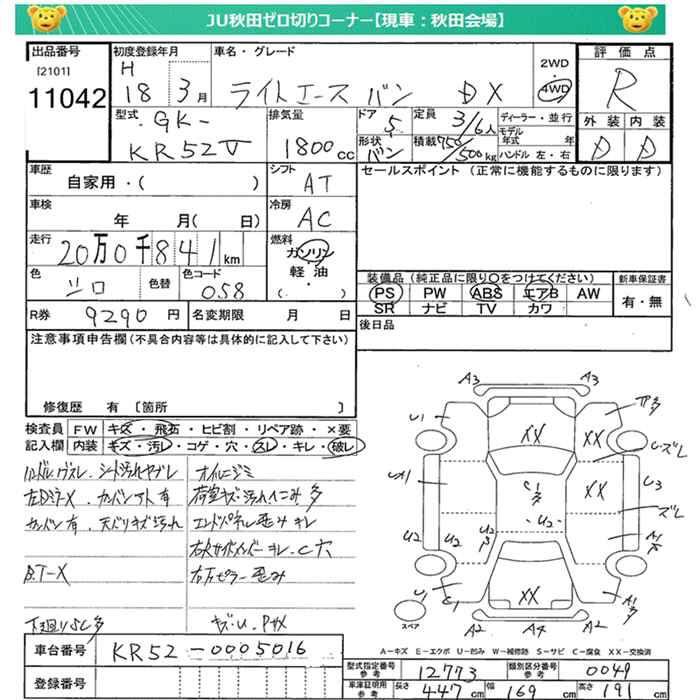 JU秋田ゼロ切りコーナー【現車：秋田会場】
出品番号
[2101]
11042
初度登録年月
H
18 3月
車名・グレード
ライトエース バン DX
2WD
4WD
評価点
R
外装 内装
D D
型式
GK-
KR52V
排気量
1800cc
ドア
5
形状
バン
定員
3/6人
積載
750/500kg
ディーラー・並行
モデル年式 年
ハンドル 左・右
車歴
自家用・( )
シフト
AT
車検
年 月( 日)
冷房
AC
走行
20万0千841km
燃料
ガソリン
軽油
( ・ )
色
シロ
色替
色コード
058
R券
9290円
名変期限 月 日
セールスポイント (正常に機能するものに限ります)
装備品 (純正品に限り○をつけてください)
PS PW ABS エアB AW
SR ナビ TV カワ
新車保証書
有・無
後日品
注意事項申告欄(不具合内容等は具体的に記入して下さい)
修復歴 有 〔箇所 〕
検査員
記入欄
FW キズ・飛石・ヒビ割・リペア跡・×要
内装 キズ・汚レ・コゲ・穴・スレ・キレ・破レ
シート汚れヤブレ
オイルニジミ
カーボン有
荷室キズ・汚れヘコミ多
エンドパネル歪みキレ
B.T-X
右Rサイドメンバーキレ・C穴
右Rピラー歪み
下廻りSC多
キズ・U・Pサメ
A3 A3
U1
XX XX
ズレ
UA1
C1多
XX
U3
U2
ズレ
U2 U2
U2
C1
XX
A2 A4 A2
スペア
A―キズ E―エクボ U―凹み W―補修跡 S―サビ C―腐食 XX―交換済
車台番号
KR52-0005016
登録番号
型式指定番号
参考
12773
類別区分番号
参考
0049
車庫証明用
参考
長さ 447cm
幅 169cm
高さ 191cm